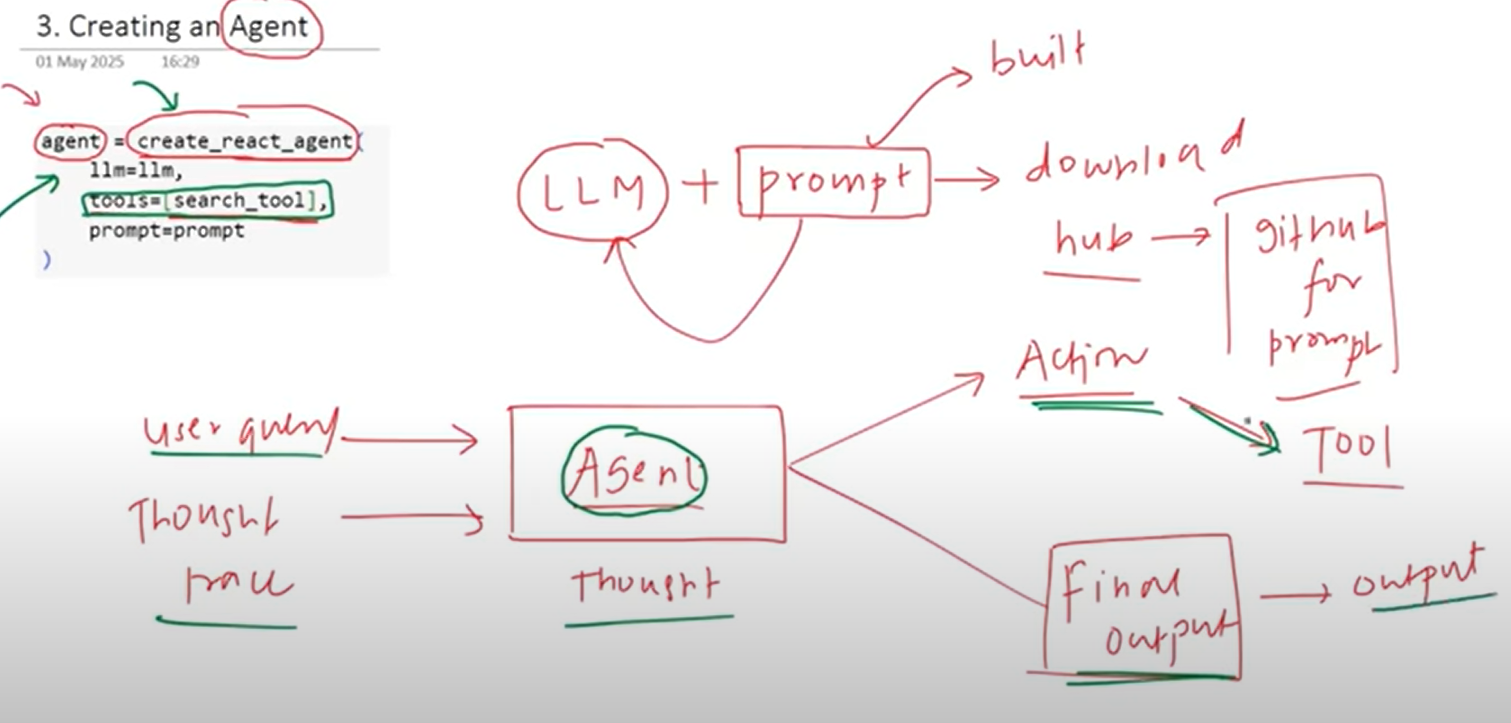 3. Creating an Agent
01 May 2025 16:29
agent = create_react_agent(
llm=llm,
tools=[search_tool],
prompt=prompt
)
built
LLM + prompt
download
hub
github
for
prompt
Action
Tool
user query
Thought
trace
Agent
Thought
Final
output
output